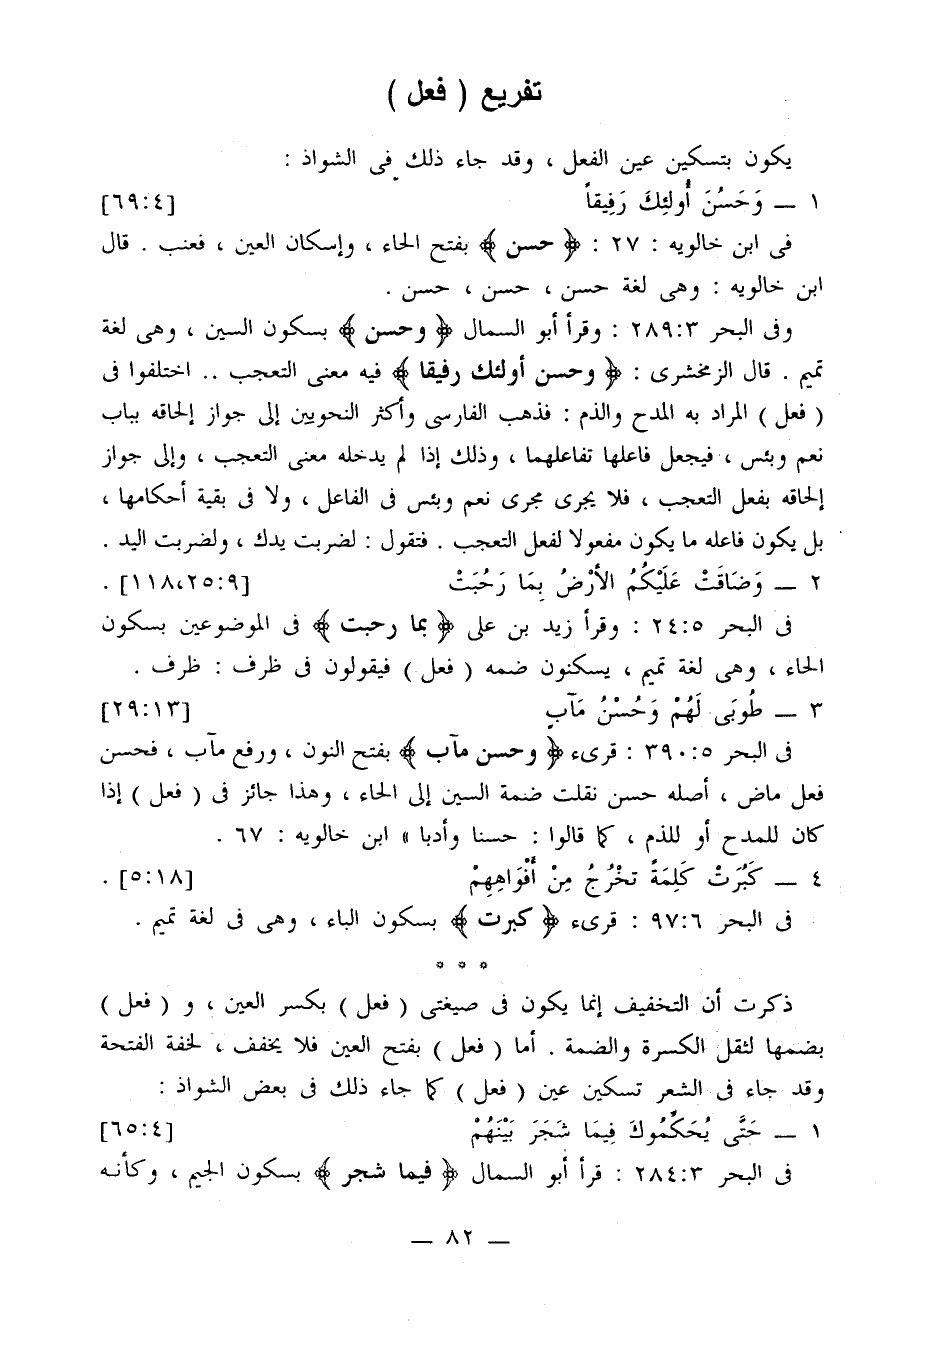 تفريع ( فعل )
يكون بتسكين عين الفعل ، وقد جاء ذلك فى الشواذ :
١ ــ وَحَسُنَ أُولئِكَ رَفِيقاً [٦٩:٤]
فى ابن خالويه : ٢٧ : ﴿ حسن ﴾ بفتح الحاء ، وإسكان العين ، فعنب . قال
ابن خالويه : وهى لغة حسن ، حسن ، حسن .
وفى البحر ٢٨٩:٣ : وقرأ أبو السمال ﴿ وحسن ﴾ بسكون السين ، وهى لغة
تميم . قال الزمخشرى : ﴿ وحسن أولئك رفيقا ﴾ فيه معنى التعجب .. اختلفوا فى
( فعل ) المراد به المدح والذم : فذهب الفارسى وأكثر النحويين إلى جواز إلحاقه بباب
نعم وبئس ، فيجعل فاعلها تفاعلهما ، وذلك إذا لم يدخله معنى التعجب ، وإلى جواز
إلحاقه بفعل التعجب ، فلا يجرى مجرى نعم وبئس فى الفاعل ، ولا فى بقية أحكامها ،
بل يكون فاعله ما يكون مفعولا لفعل التعجب . فتقول : لضربت يدك ، ولضربت اليد .
٢ ــ وَضَاقَتْ عَلَيْكُمُ الأَرْضُ بِمَا رَحُبَتْ [١١٨،٢٥:٩] .
فى البحر ٢٤:٥ : وقرأ زيد بن على ﴿ بما رحبت ﴾ فى الموضوعين بسكون
الحاء ، وهى لغة تميم ، يسكنون ضمه ( فعل ) فيقولون فى ظرف : ظرف .
٣ ــ طُوبَى لَهُمْ وَحُسْنُ مَآبٍ [٢٩:١٣]
فى البحر ٣٩٠:٥ : قرىء ﴿ وحسن مآب ﴾ بفتح النون ، ورفع مآب ، فحسن
فعل ماض ، أصله حسن نقلت ضمة السين إلى الحاء ، وهذا جائز فى ( فعل ) إذا
كان للمدح أو للذم ، كما قالوا : حسنا وأدبا » ابن خالويه : ٦٧ .
٤ ــ كَبُرَتْ كَلِمَةً تخْرُجُ مِنْ أَفْوَاهِهِمْ [٥:١٨] .
فى البحر ٩٧:٦ : قرىء ﴿ كبرت ﴾ بسكون الباء ، وهى فى لغة تميم .
* * *
ذكرت أن التخفيف إنما يكون فى صيغتى ( فعل ) بكسر العين ، و ( فعل )
بضمها لثقل الكسرة والضمة . أما ( فعل ) بفتح العين فلا يخفف ، لخفة الفتحة
وقد جاء فى الشعر تسكين عين ( فعل ) كما جاء ذلك فى بعض الشواذ :
١ ــ حَتَّى يُحَكِّمُوكَ فِيمَا شَجَرَ بَيْنَهُمْ [٦٥:٤]
فى البحر ٢٨٤:٣ : قرأ أبو السمال ﴿ فيما شجر ﴾ بسكون الجيم ، وكأنـه
ــ ٨٢ ــ